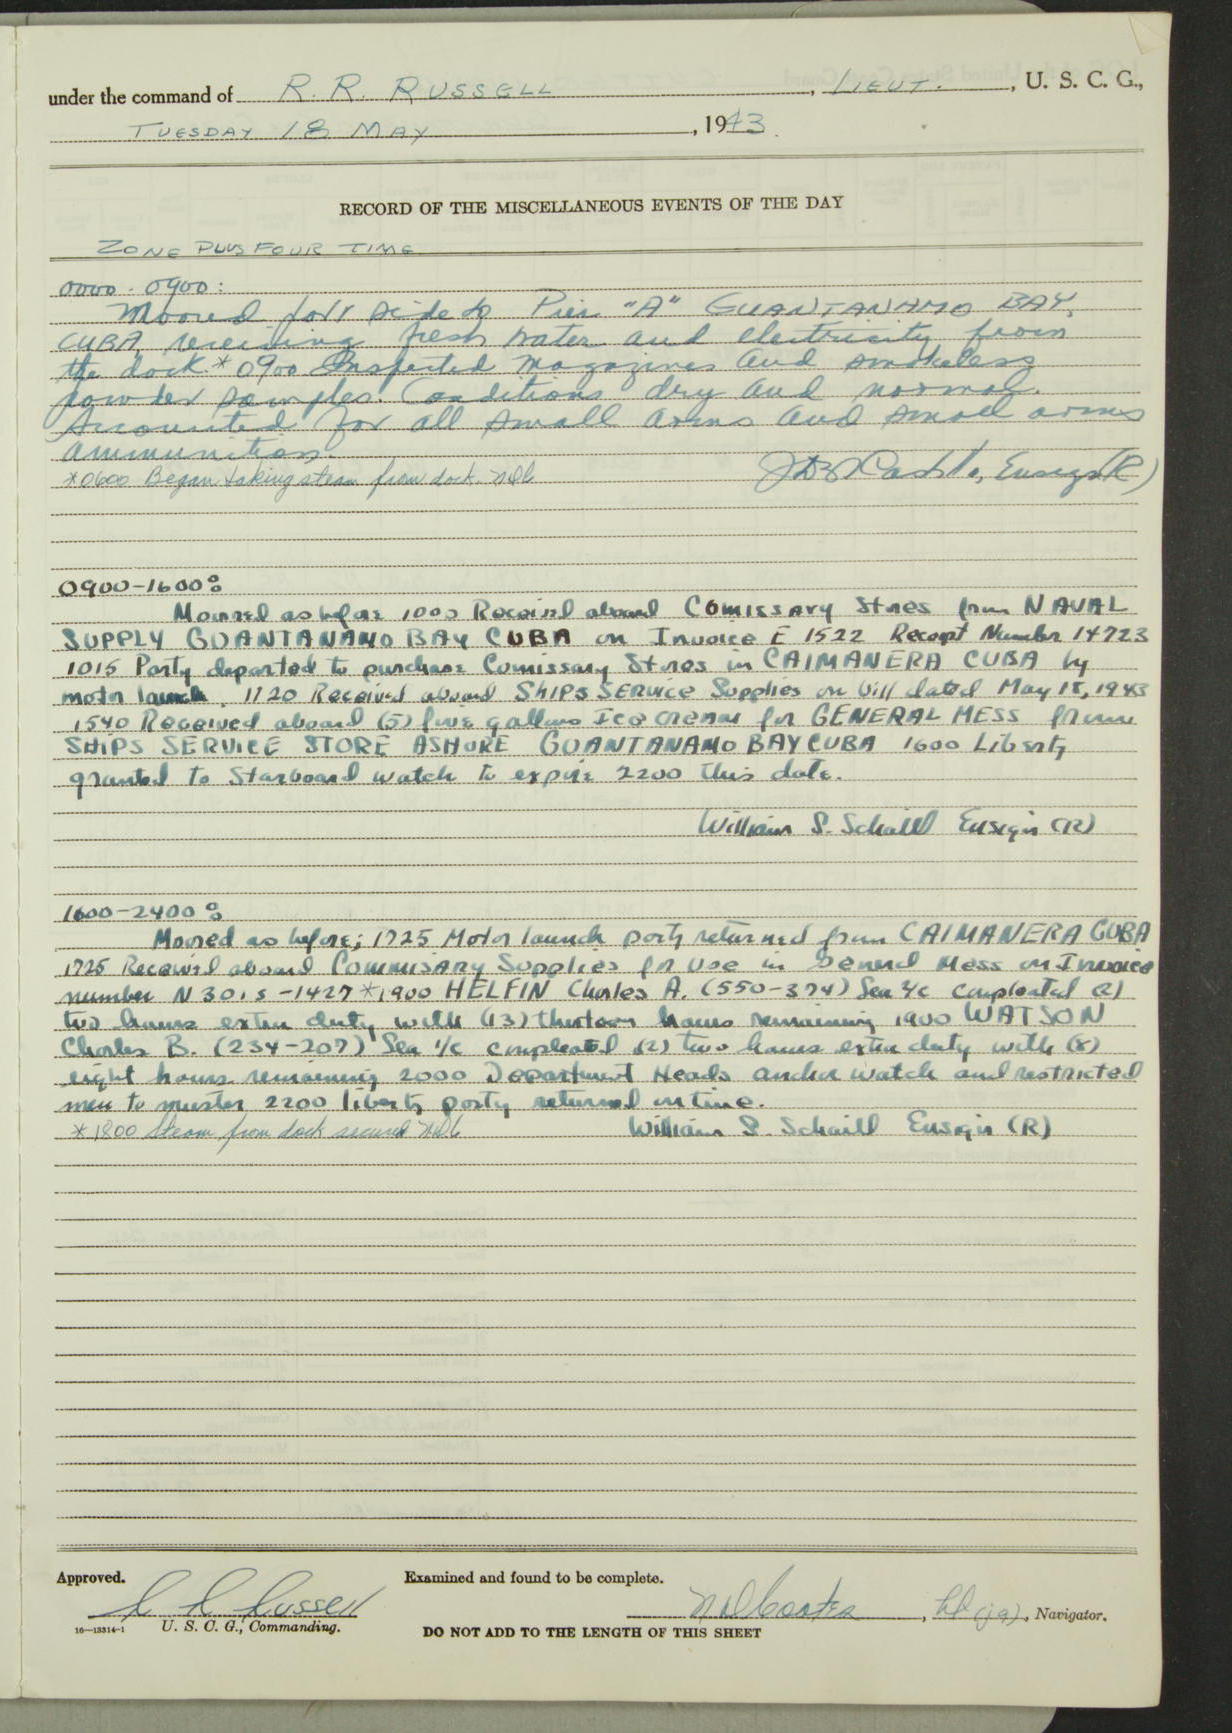 under the command of R. R. RUSSELL, LIEUT., U. S. C. G.,
TUESDAY 18 MAY, 1943.
RECORD OF THE MISCELLANEOUS EVENTS OF THE DAY
ZONE PLUS FOUR TIME
0000 - 0900:
Moored port side to Pier "A" GUANTANAMO BAY,
CUBA, receiving fresh water and electricity from
the dock * 0900 Inspected magazines and smokeless
powder samples. Conditions dry and normal.
Accounted for all small arms and small arms
ammunition.
Ensign (R)
*0600 Began taking steam from dock.
0900-1600:
Moored as before 1000 Received aboard Comissary Stores from NAVAL
SUPPLY GUANTANAMO BAY CUBA on Invoice E 1522 Receipt Number 14723
1015 Party departed to purchase Comissary Stores in CAIMANERA CUBA by
motor launch. 1120 Received aboard SHIPS SERVICE Supplies on bill dated May 18, 1943
1540 Received aboard (5) five gallons Ice cream for GENERAL MESS from
SHIPS SERVICE STORE ASHORE GUANTANAMO BAY CUBA 1600 Liberty
granted to Starboard watch to expire 2200 this date.
William S. Schaill Ensign (R)
1600-2400:
Moored as before; 1725 Motor launch party returned from CAIMANERA CUBA
1725 Received aboard Commisary Supplies for use in General Mess on Invoice
number N 30 1 s -1427 *1900 HELFIN Charles A. (550-374) Sea 2/c compleated (2)
two hours extra duty with (13) thirteen hours remaining 1900 WATSON
Charles B. (234-207) Sea 1/c compleated (2) two hours extra duty with (8)
eight hours remaining 2000 Department Heads anchor watch and restricted
men to muster 2200 liberty party returned on time.
*1800 Steam from dock secured
William S. Schaill Ensign (R)
Approved.
Examined and found to be complete.
R R Russell
, Lt (jg), Navigator.
16-13314-1
U. S. C. G., Commanding.
DO NOT ADD TO THE LENGTH OF THIS SHEET